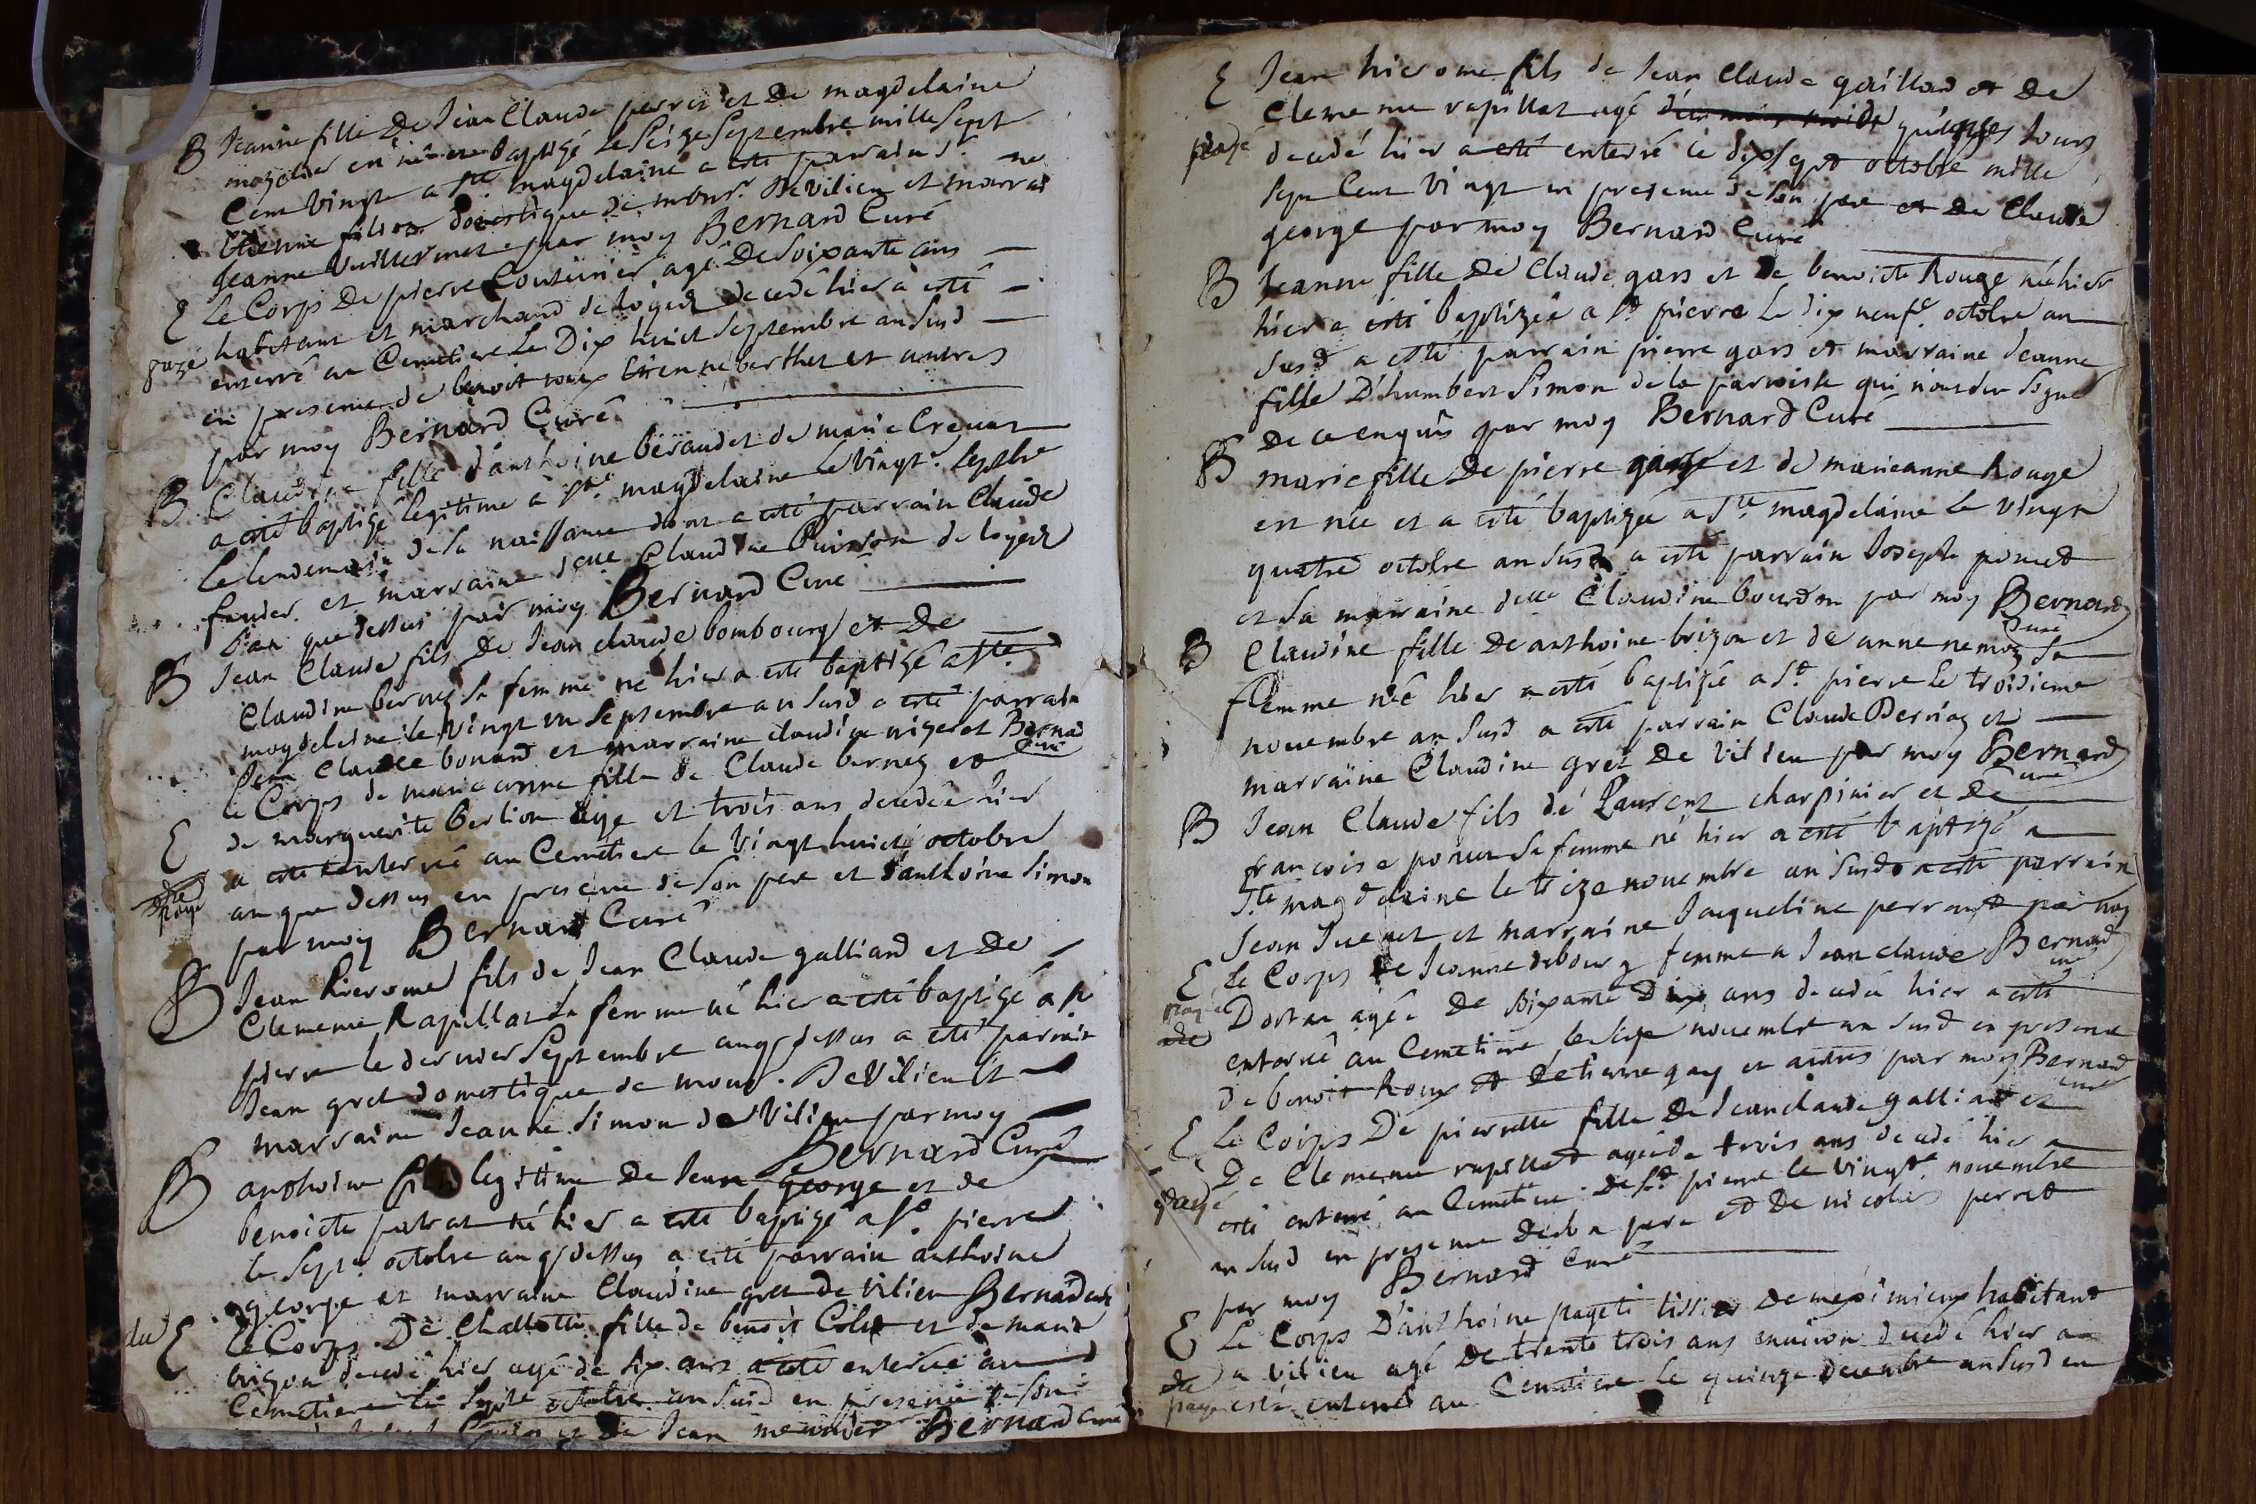 B Jeanne fille De Jean Claude perret et De magdelaine
baptizé le Seize Septembre mille Sept
Cent Vingt a Ste magdelaine a esté parrain Sr
Etienne domestique de monsr. De Vilieu et marrai ne
Jeanne Vuillermet par moy Bernard Curé
E Le Corps De pierre Couturier agé De Soixante ans
habitant et marchand de loyed decedé hier a esté
payé enterré au Cemetiere Le Dix huict Septembre an Susd
en presence de benoit roux Etienne berthet et autres
par moy Bernard Curé
B Claudine fille d'anthoine beraud et de marie Crevat
a esté baptizé legitime a Ste magdelaine le Vingte. Septbre
Le lendemain de Sa naissance dont a esté parrain Claude
et marraine delle Claudine de loyed
l'an que dessus par moy Bernard Curé
B Jean Claude fils De Jean claude bombourg et De
Claudine bernez Sa femme né hier a esté baptizé a Ste
magdelaine le Vingt un Septembre an Susd a esté parrain
Jean Claude bonard et marraine claudine nigeret Bernad
Curé
le Corps de marie anne fille de Claude bernez et
E de marguerite berlion age et trois ans decedée hier
a esté enterrée au Cemetiere le Vingt huict octobre
payé an que dessus en presence de Son pere et d'anthoine Simon
par moy Bernard Curé
B Jean hierome fils de Jean Claude galliard et De
Clemence Rapillat Sa femme né hier a esté baptizé a St
pierre le dernier Septembre an q dessus a esté parrain
Jean gret domestique de monsr. De Vilieu et
marraine Jeanne Simon de Vilieu par moy
Bernard Curé
B anthoine fils legitime De Jean george et de
benoicte patrat né hier a esté baptizé a St. pierre
le Septe. octobre an q dessus a esté parrain anthoine
george et marraine Claudine gret de vilieu Bernard curé
du E Le Corps De Challotte fille de benoit Colet et de marie
brizon decedé hier agé de Six ans a esté enterrée au
Cemetiere le Septe octobre an Susd en presence de Son
et De Jean meunier Bernard Curé
E Jean hierome fils de Jean Claude gaillard et De
Clemence rapillat agé quelques Jours
payé decedé hier a esté enterré le dix Sept octobre mille
Sept Cent Vingt en presence de Son pere et De Claude
george par moy Bernard Curé
B Jeanne fille De Claude gars et De benoicte Rouge né hier
hier a esté baptizée a St pierre Le dix neufe. octobre an
Susd a esté parrain pierre gars et marraine Jeanne
fille D'humbert Simon de la paroisse qui n'ont Sceu Signé
De ce enquis par moy Bernard Curé
B marie fille De pierre garge et de marieanne Rouge
est née et a esté baptizée a Ste magdelaine le Vingt
quatre octobre an Susd a esté parrain Joseph poncet
et Sa marraine delle Claudine bourdin par moy Bernard
Curé
B Claudine fille De anthoine brizon et de anne nemoz Sa
femme née hier a esté baptizée a St. pierre Le troisieme
novembre an Susd a esté parrain Claude Berniaz et
marraine Claudine gret De Vilieu par moy Bernard
Curé
B Jean Claude fils de Laurent charpinier et De
francoise poncet Sa femme né hier a esté baptizé a
Ste magdelaine le treize novembre an Susd a esté parrain
Jean Juenet et marraine Jacqueline perraud par moy
Bernad
curé
E Le Corps de Jeanne debourg femme a Jean claude
payé Dortan agée De Soixante Dix ans decedée hier a esté
enterrée au Cemetiere, le Seize novembre an Susd en presence
de benoit Roux et De tienne gay et autres par moy Bernard
curé
E Le Corps De pierrette fille De Jean claude galliard et
De Clemence rapillat agée de trois ans decedé hier a
payé esté enterré au Cemetiere. De St pierre le vingte. novembre
an Susd en presence de Son pere et De nicolas perret
par moy Bernard Curé
E Le Corps D'anthoine pageti tissier De meximieux habitant
a vilieu agé De trente trois ans environ decedé hier a
payé esté enterré au Cemetiere Le quinze decembre an Susd en